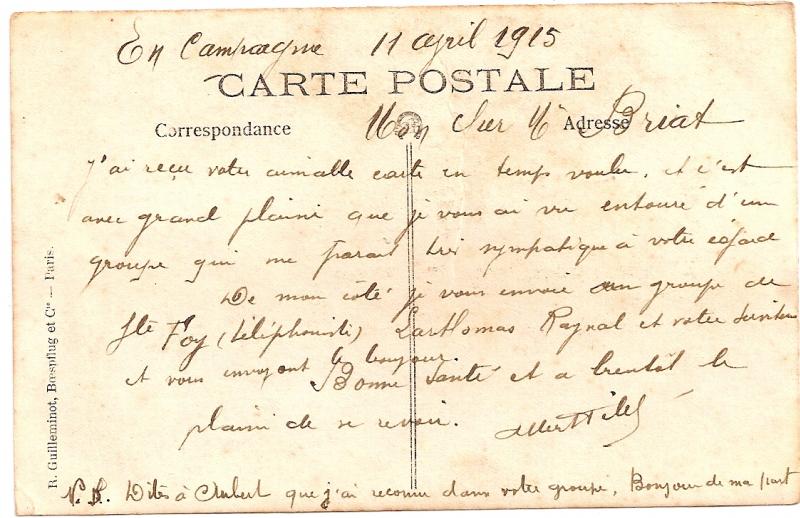 En Campagne 11 avril 1915
CARTE POSTALE
Correspondance
Adresse
Mon Sieur Mr Briat
J'ai reçu votre aimable carte en temps voulu, et c'est
avec grand plaisir que je vous ai vu entouré d'un
groupe qui me parait très sympatique à votre égard
De mon côté je vous envoie un groupe de
Ste Foy (téléphonistes) Lasthomas Raynal et votre serviteur
et vous envoyont le bonjour.
Bonne santé et a bientôt le
plaisir de se revoir.
N.B. Dites à Aubert que j'ai reconnu dans votre groupe, Bonjour de ma part
R. Guilleminot, Bœspflug et Cie — Paris.